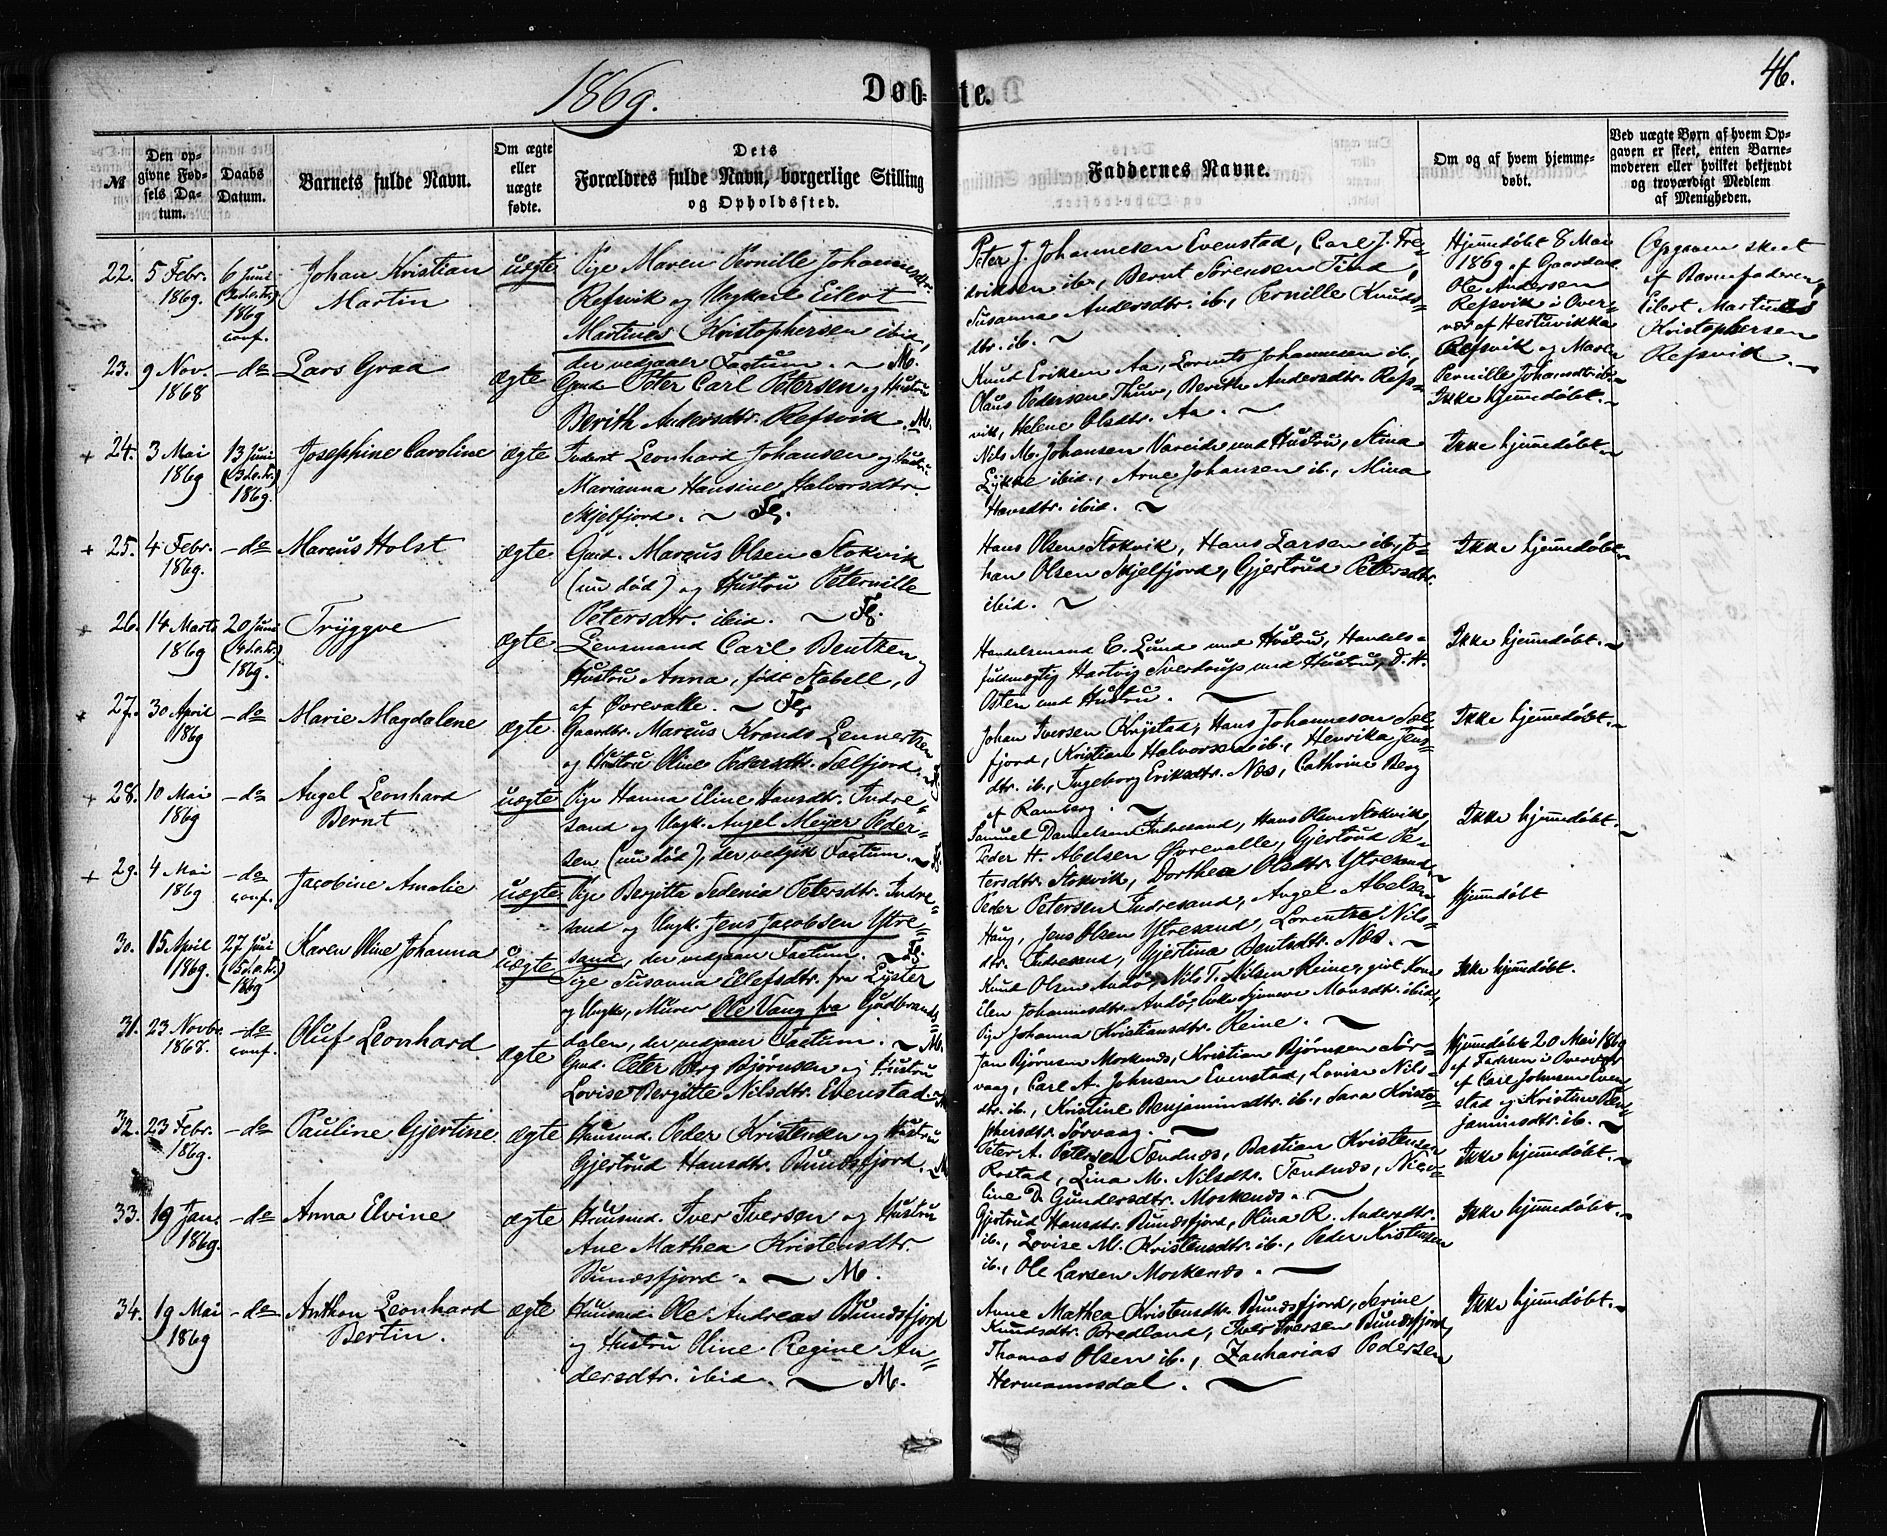 1869.
Døbte.
46.
№
Den opgivne Fødsels Datum.
Daabs Datum.
Barnets fulde Navn.
Om ægte eller uægte fødte.
Dets Forældres fulde Navn, borgerlige Stilling og Opholdssted.
Faddernes Navne.
Om og af hvem hjemmedøbt.
Ved uægte Børn af hvem Opgaven er skeet, enten Barnemoderen eller hvilket bekjendt og troværdigt Medlem af Menigheden.
22. 5 Febr. 1869. 6 Juni 1869 conf.
Johan Kristian
Martin
uægte
Pige Maren Pernille Johannesdtr.
Refsvik og Ungkarl Eilert
Martines Kristophersen ibid,
der vedgaaer Factum. M.
Peter J. Johannesen Evenstad, Carl J. Fre-
driksen ib., Bernt Sørensen Tind,
Susanna Andersdtr. ib., Pernille Knuds-
dtr. ib.
Hjemdøbt 8 Mai
1869 af Gaardmd
Ole Andersen
Refsvik i Over-
vær af
Refsvik og Maren
Pernille Johansdtr ib.
Opgaven skeet
af Barnefaderen,
Eilert Martines
Kristophersen
Refsvik.
23. 9 Nov. 1868 - do
Lars Graa
ægte
Gmd. Peter Carl Petersen og Hustru
Berith Andersdtr. Refsvik. M.
Knud Eriksen Aa, Lorents Johannesen ib.,
Olaus Pedersen Thuv, Berith Andersdtr. Refs-
vik, Helene Olsdtr. Aa.
Ikke hjemdøbt.
+ 24. 3 Mai 1869 13 Juni 1869.
Josephine Caroline
ægte
Inderst Leonhard Johansen og Hustru
Marianna Hansine Halvorsdtr.
Skjelfjord. Fl.
Nils M. Johansen Vareide med Hustru, Stina
Lykke ibid., Arne Johansen ib., Mina
Hansdtr. ibid.
Ikke hjemdøbt.
+ 25. 4 Febr. 1869. - do
Marcus Holst
ægte
Gmd. Marcus Olsen Stokvik
(nu død) og Hustru Peternille
Petersdtr. ibid. Fl.
Hans Olsen Stokvik, Hans Larsen ib., Jo-
han Olsen Skjelfjord, Gjertrud Petersdtr.
ibid.
Ikke hjemdøbt.
+ 26. 14 Marts 1869 20 Juni 1869.
Tryggve
ægte
Lensmand Carl Bentzen,
Hustru Anna, født Stabell,
af Øvrevalle. Fl.
Handelsmand C. Lund med Hustru, Handels-
fuldmægtig Hartvig Sverdrup med Hustru, D. H.
Osten med Hustru.
Ikke hjemdøbt.
+ 27. 30 April 1869 - do
Marie Magdalene
ægte
Gaardbr. Marcus Krands Lennertsen
og Hustru Oline Pedersdtr. Sælfjord.
Johan Iversen Krystad, Hans Johannesen Sæl-
fjord, Kristian Halvorsen ib., Henrika Jens-
dtr. ib., Ingeborg Eriksdtr. Næs, Cathrine Berg
af Ramberg.
Ikke hjemdøbt.
+ 28. 10 Mai 1869 - do
Angel Leonhard
Bernt
uægte
Pige Hanna Eline Hansdtr. Indre-
sand og Ungk. Angel Meyer Peder-
sen (nu død), der vedgik Factum. Fl.
Samuel Danielsen Indresand, Hans Olsen Stokvik,
Peder H. Abelsen Øvrevalle, Gjertrud Pe-
tersdtr. Stokvik, Dorthea Olsdtr. Ytresand.
Ikke hjemdøbt.
+ 29. 4 Mai 1869 - do conf.
Jacobine Amalie
uægte
Pige Bergitta Sedenia Petersdtr. Indre-
sand og Ungk. Jens Jacobsen Ytre-
sand, der vedgaaer Factum. Fl.
Peder Petersen Indresand, Angel Abelsen
Haug, Jens Olsen Ytresand, Lorentse Nils-
dtr. Indresand, Gjertina Bentsdtr. Næs.
Hjemdøbt
30. 15. April 1869. 27 Juni 1869
Karen Oline Johanna
uægte
Pige Susanna Ellefsdtr. fra Lyster
og Ungk., Murer Ole Vang fra Gudbrands-
dalen, der vedgaaer Factum. M.
Knud Olsen Andø, Nils T. Nilsen Reine, gift Kone
Elen Johannesdtr. Andø, Monsdtr. ibid,
Pige Johanna Kristiansdtr. Reine.
Ikke hjemdøbt.
31. 23 Novbr. 1868. - do conf.
Oluf Leonhard
ægte
Gmd. Peter Berg Bjørnsen og Hustru
Lovise Bergitte Nilsdtr. Evenstad. M.
Jan Bjørnsen Moskenæs, Kristian Bjørnsen Sør-
vaag, Carl A. Johnsen Evenstad, Lovise Nils-
dtr. ib., Kristine Benjaminsdtr. ib., Sara Kristo-
phersdtr. Sørvaag.
Hjemdøbt 20 Mai 1869
af Faderen i Overvær
af Carl Johnsen Even-
stad og Kristine Ben-
jaminsdtr. ib.
32. 23 Febr. 1869. - do
Pauline Gjertine
ægte
Huusmd. Peder Kristensen og Hustru
Gjertrud Hansdtr. Bunæsfjord. M.
Peter A. Petersen Tendnæs, Bastian Kristensen
Rostad, Lina M. Nilsdtr. Tendnæs, Nico-
line D. Gundersdtr. Moskenæs.
Ikke hjemdøbt.
33. 19 Jan. 1869. - do
Anna Elvine
ægte
Huusmd. Iver Iversen og Hustru
Ane Mathea Kristensdtr.
Bunæsfjord. M.
Gjertrud Hansdtr. Bunæsfjord, Olina R. Andersdtr.
ib., Lovise M. Kristensdtr. ib., Peder Kristensen
ib., Ole Larsen Moskenæs.
Ikke hjemdøbt.
34. 19 Mai 1869 - do
Anthon Leonhard
Bertin.
ægte
Huusmd. Ole Andreas Bunæsfjord
og Hustru Oline Regine An-
dersdtr. ibid. M.
Anne Mathea Kristensdtr. Bunæsfjord, Serine
Knudsdtr. Bredland, Iver Iversen Bunæsfjord,
Thomas Olsen ib., Zacharias Pedersen
Hermannsdal.
Ikke hjemdøbt.